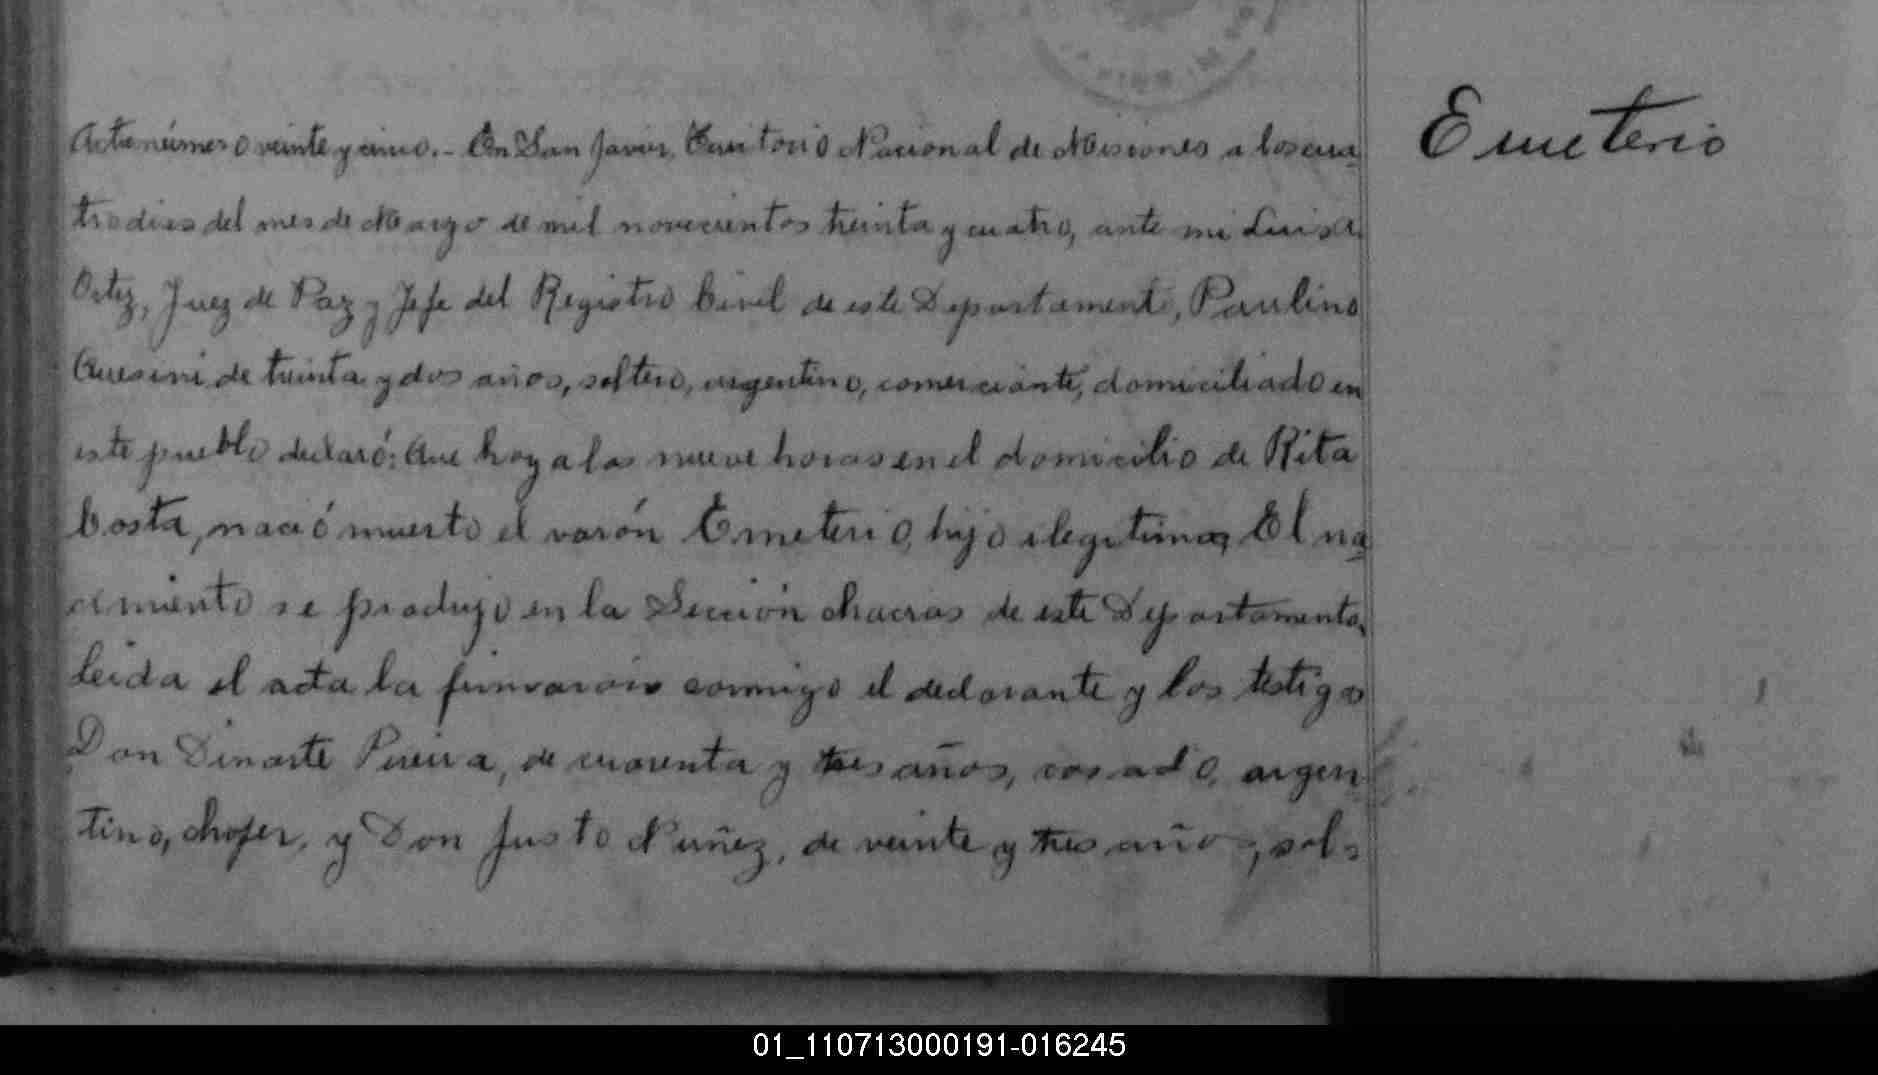 Acta número veinte y cinco.- En San Javier, Territorio Nacional de Misiones a los cua
Emeterio
tro dias del mes de Marzo de mil novecientos treinta y cuatro, ante mi Luis A.
Ortiz, Juez de Paz y Jefe del Registro Civil de este Departamento, Paulino
de treinta y dos años, soltero, argentino, comerciante, domiciliado en
este pueblo declaró: Que hoy a las nueve horas en el domicilio de Rita
Costa, nació muerto el varón Emeterio, hijo ilegitimo, El na
cimiento se produjo en la Sección chacras de este Departamento,
leida el acta la firmaron conmigo el declarante y los testigos
Don Dinarte Pereira, de cuarenta y tres años, casado, argen
tino, chofer, y Don Justo Nuñez, de veinte y tres años, sol-
01_110713000191-016245